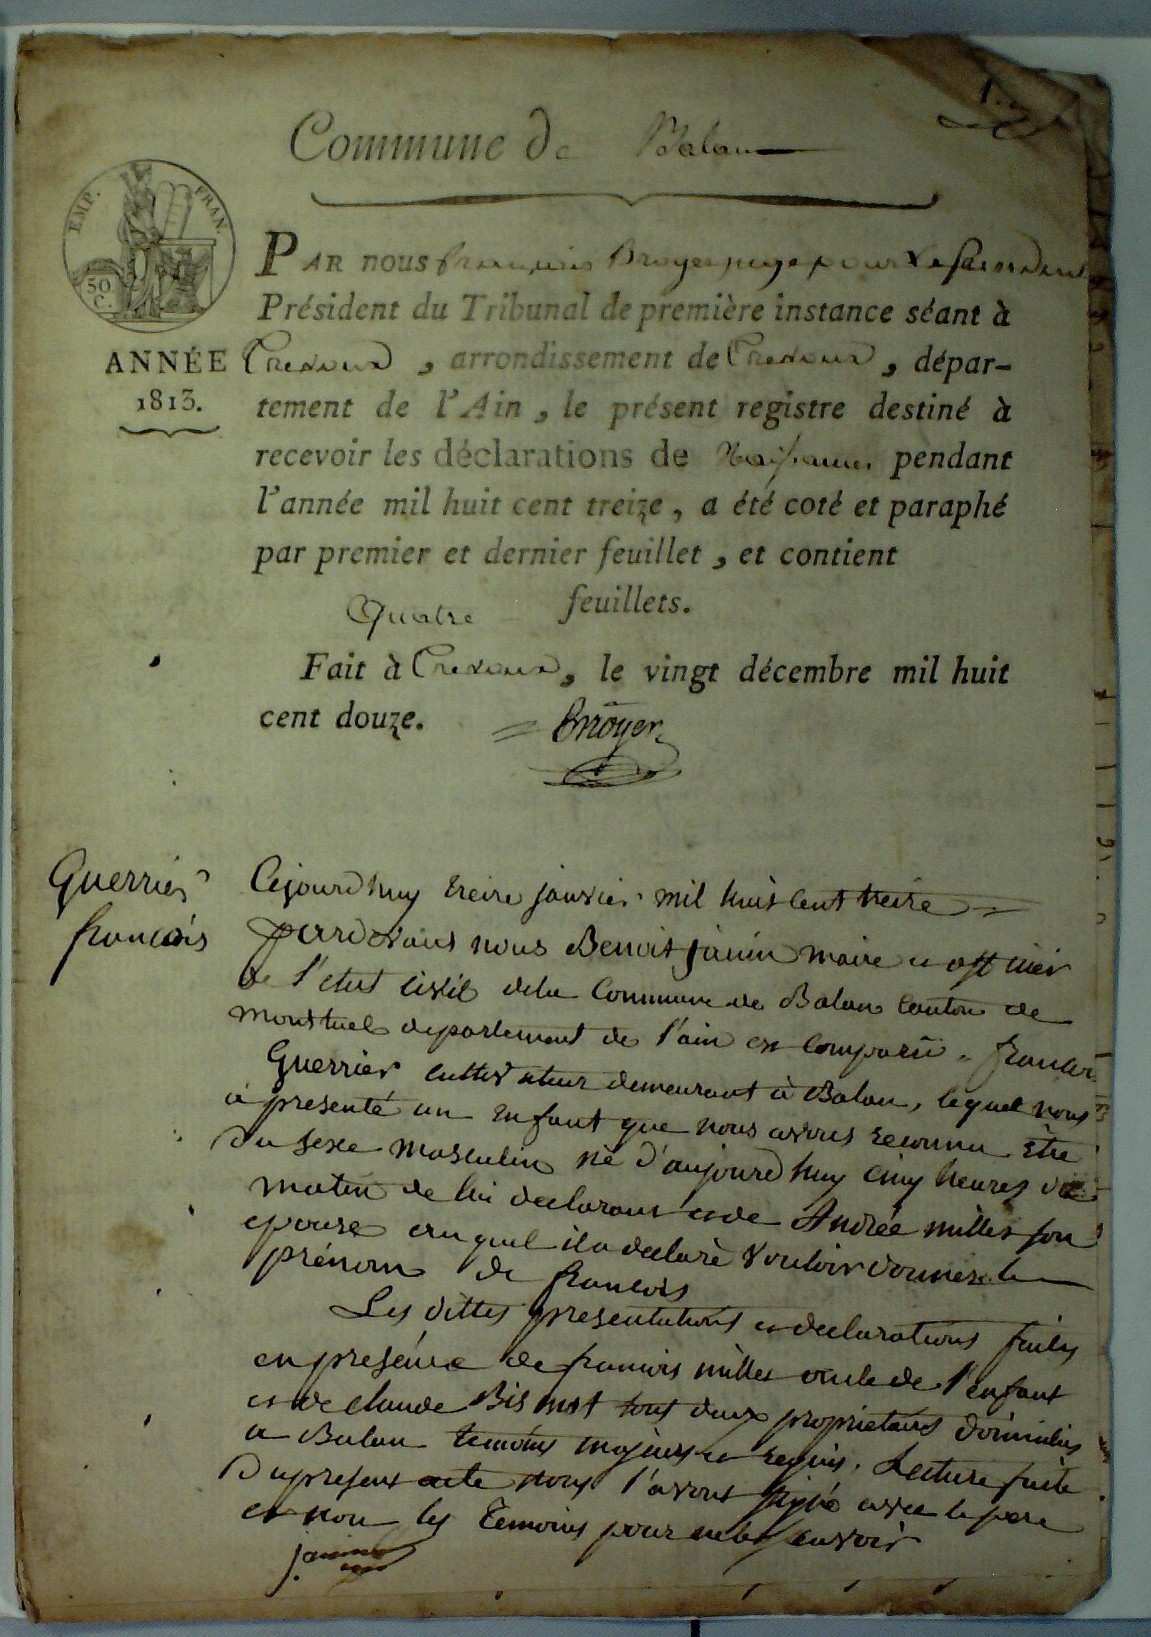 Commune de Balan
EMP. FRAN.
50
C.
ANNÉE
1813.
PAR nous françois Broyer juge pour le
Président du Tribunal de première instance séant à
Trevoux, arrondissement de Trevoux, dépar-
tement de l'Ain, le présent registre destiné à
recevoir les déclarations de Naissances pendant
l'année mil huit cent treize, a été coté et paraphé
par premier et dernier feuillet, et contient
Quatre feuillets.
Fait à Trevoux, le vingt décembre mil huit
cent douze. Broyer
Guerrier
francois
Cejourd huy treize janvier mil huit cent treize
pardevant nous Benoit janin maire et officier
de l'etat civil dela Commune de Balan Canton de
montluel departement de l'ain est comparu francois
Guerrier cultivateur demeurant à Balan, lequel nous
à presenté un enfant que nous avons reconnu être
du sexe masculin né d'aujourd huy cinq heures du
matin de lui declarant et de Andrée millet son
epouse auquel il a declaré vouloir donner le
prénom de francois
Les dittes presentations et declarations faites
en presence de francois millet oncle de l'enfant
et de claude Bis mot tout deux proprietaires domiciliés
a Balan temoins majeurs et requis. Lecture faite
du present acte nous l'avons signé avec le pere
et non les temoins pour ne le savoir
janin